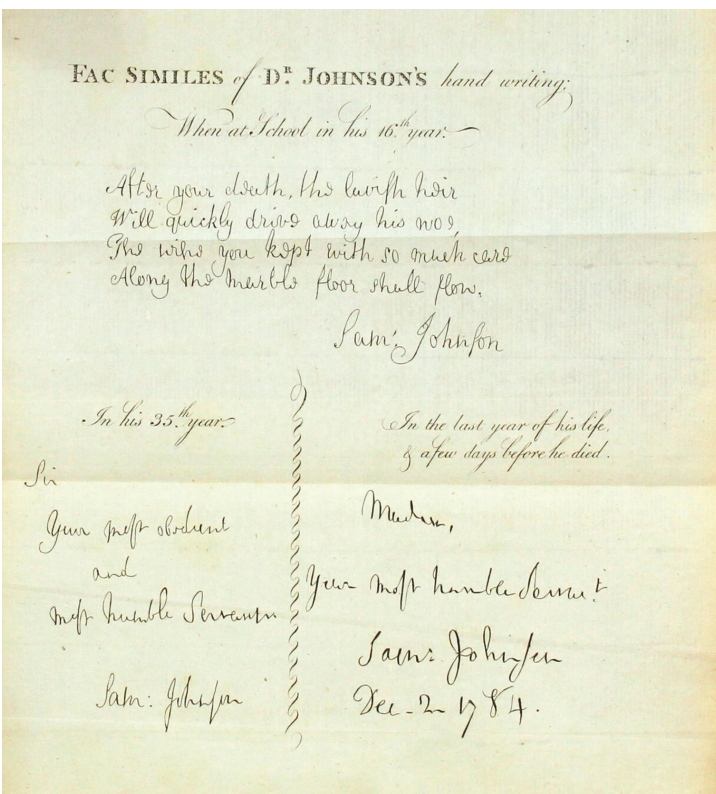 FAC SIMILES of Dr. JOHNSON'S hand writing;
When at School in his 16.th year.
After your death, the laviſh heir
Will quickly drive away his woe,
The wine you kept with so much care
Along the marble floor shall flow.
Sam: Johnſon
In his 35.th year.
Sir
Your moſt obedient
and
moſt humble Servant
Sam: Johnſon
In the last year of his life,
& a few days before he died.
Madam,
Your moſt humble Servant
Sam: Johnſon
Dec. 2 1784.